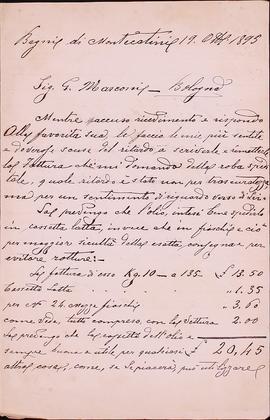 Bagni di Montecatini 19. Ott. 1895
Sig. G. Mascomis – Bologna
Mentre accuso ricevimento e rispondo
alla favorita sua, le faccio le mie più sentite
e doverose scuse del ritardo a scriverle e rimetterle
la fattura che mi domanda della roba spedi-
tale, quale ritardo è stato non per trascuratezza
ma per un sentimento di riguardo verso di Lei.
La prevengo che l'olio, intesi bene spedirlo
in cassetta latta, invece che in fiaschi, e ciò
per maggior facilità della esatta consegna e per
evitare rotture:-
La fattura d'esso Kg. 10 – a 135. £ 13.50
Cassetta Latta " 1.35
per N° 24. mezzi fiaschi " 3.60
come vede, tutto compreso, con la vettura 2.00
La prevengo che la cassetta dell'olio è
sempre buona e utile per qualsiasi £ 20.45
altra cosa, come, se le piacerà, può utilizzare